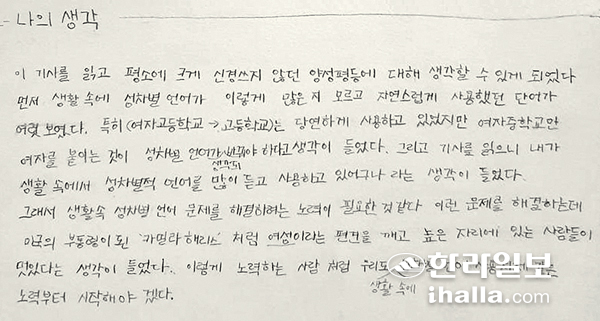 나의 생각
이 기사를 읽고 평소에 크게 신경쓰지 않던 양성평등에 대해 생각할 수 있게 되었다
먼저 생활 속에 성차별 언어가 이렇게 많은지 모르고 자연스럽게 사용했던 단어가
여럿 보였다. 특히 (여자고등학교 → 고등학교)는 당연하게 사용하고 있었지만 여자중학교만
여자를 붙이는 것이 성차별 언어가 바꿔야 하다고 생각이 들었다. 그리고 기사를 읽으니 내가
생활 속에서 성차별적 언어를 많이 듣고 사용하고 있었구나 라는 생각이 들었다.
그래서 생활속 성차별 언어 문제를 해결하려는 노력이 필요한 것 같다 이런 문제를 해결하는데
미국의 부통령이 된 '카멀라 해리스' 처럼 여성이라는 편견을 깨고 높은 자리에 있는 사람들이
멋있다는 생각이 들었다. 이렇게 노력하는 사람 처럼 우리도
생활 속에
노력부터 시작해야 겠다.
한라일보
ihalla.com